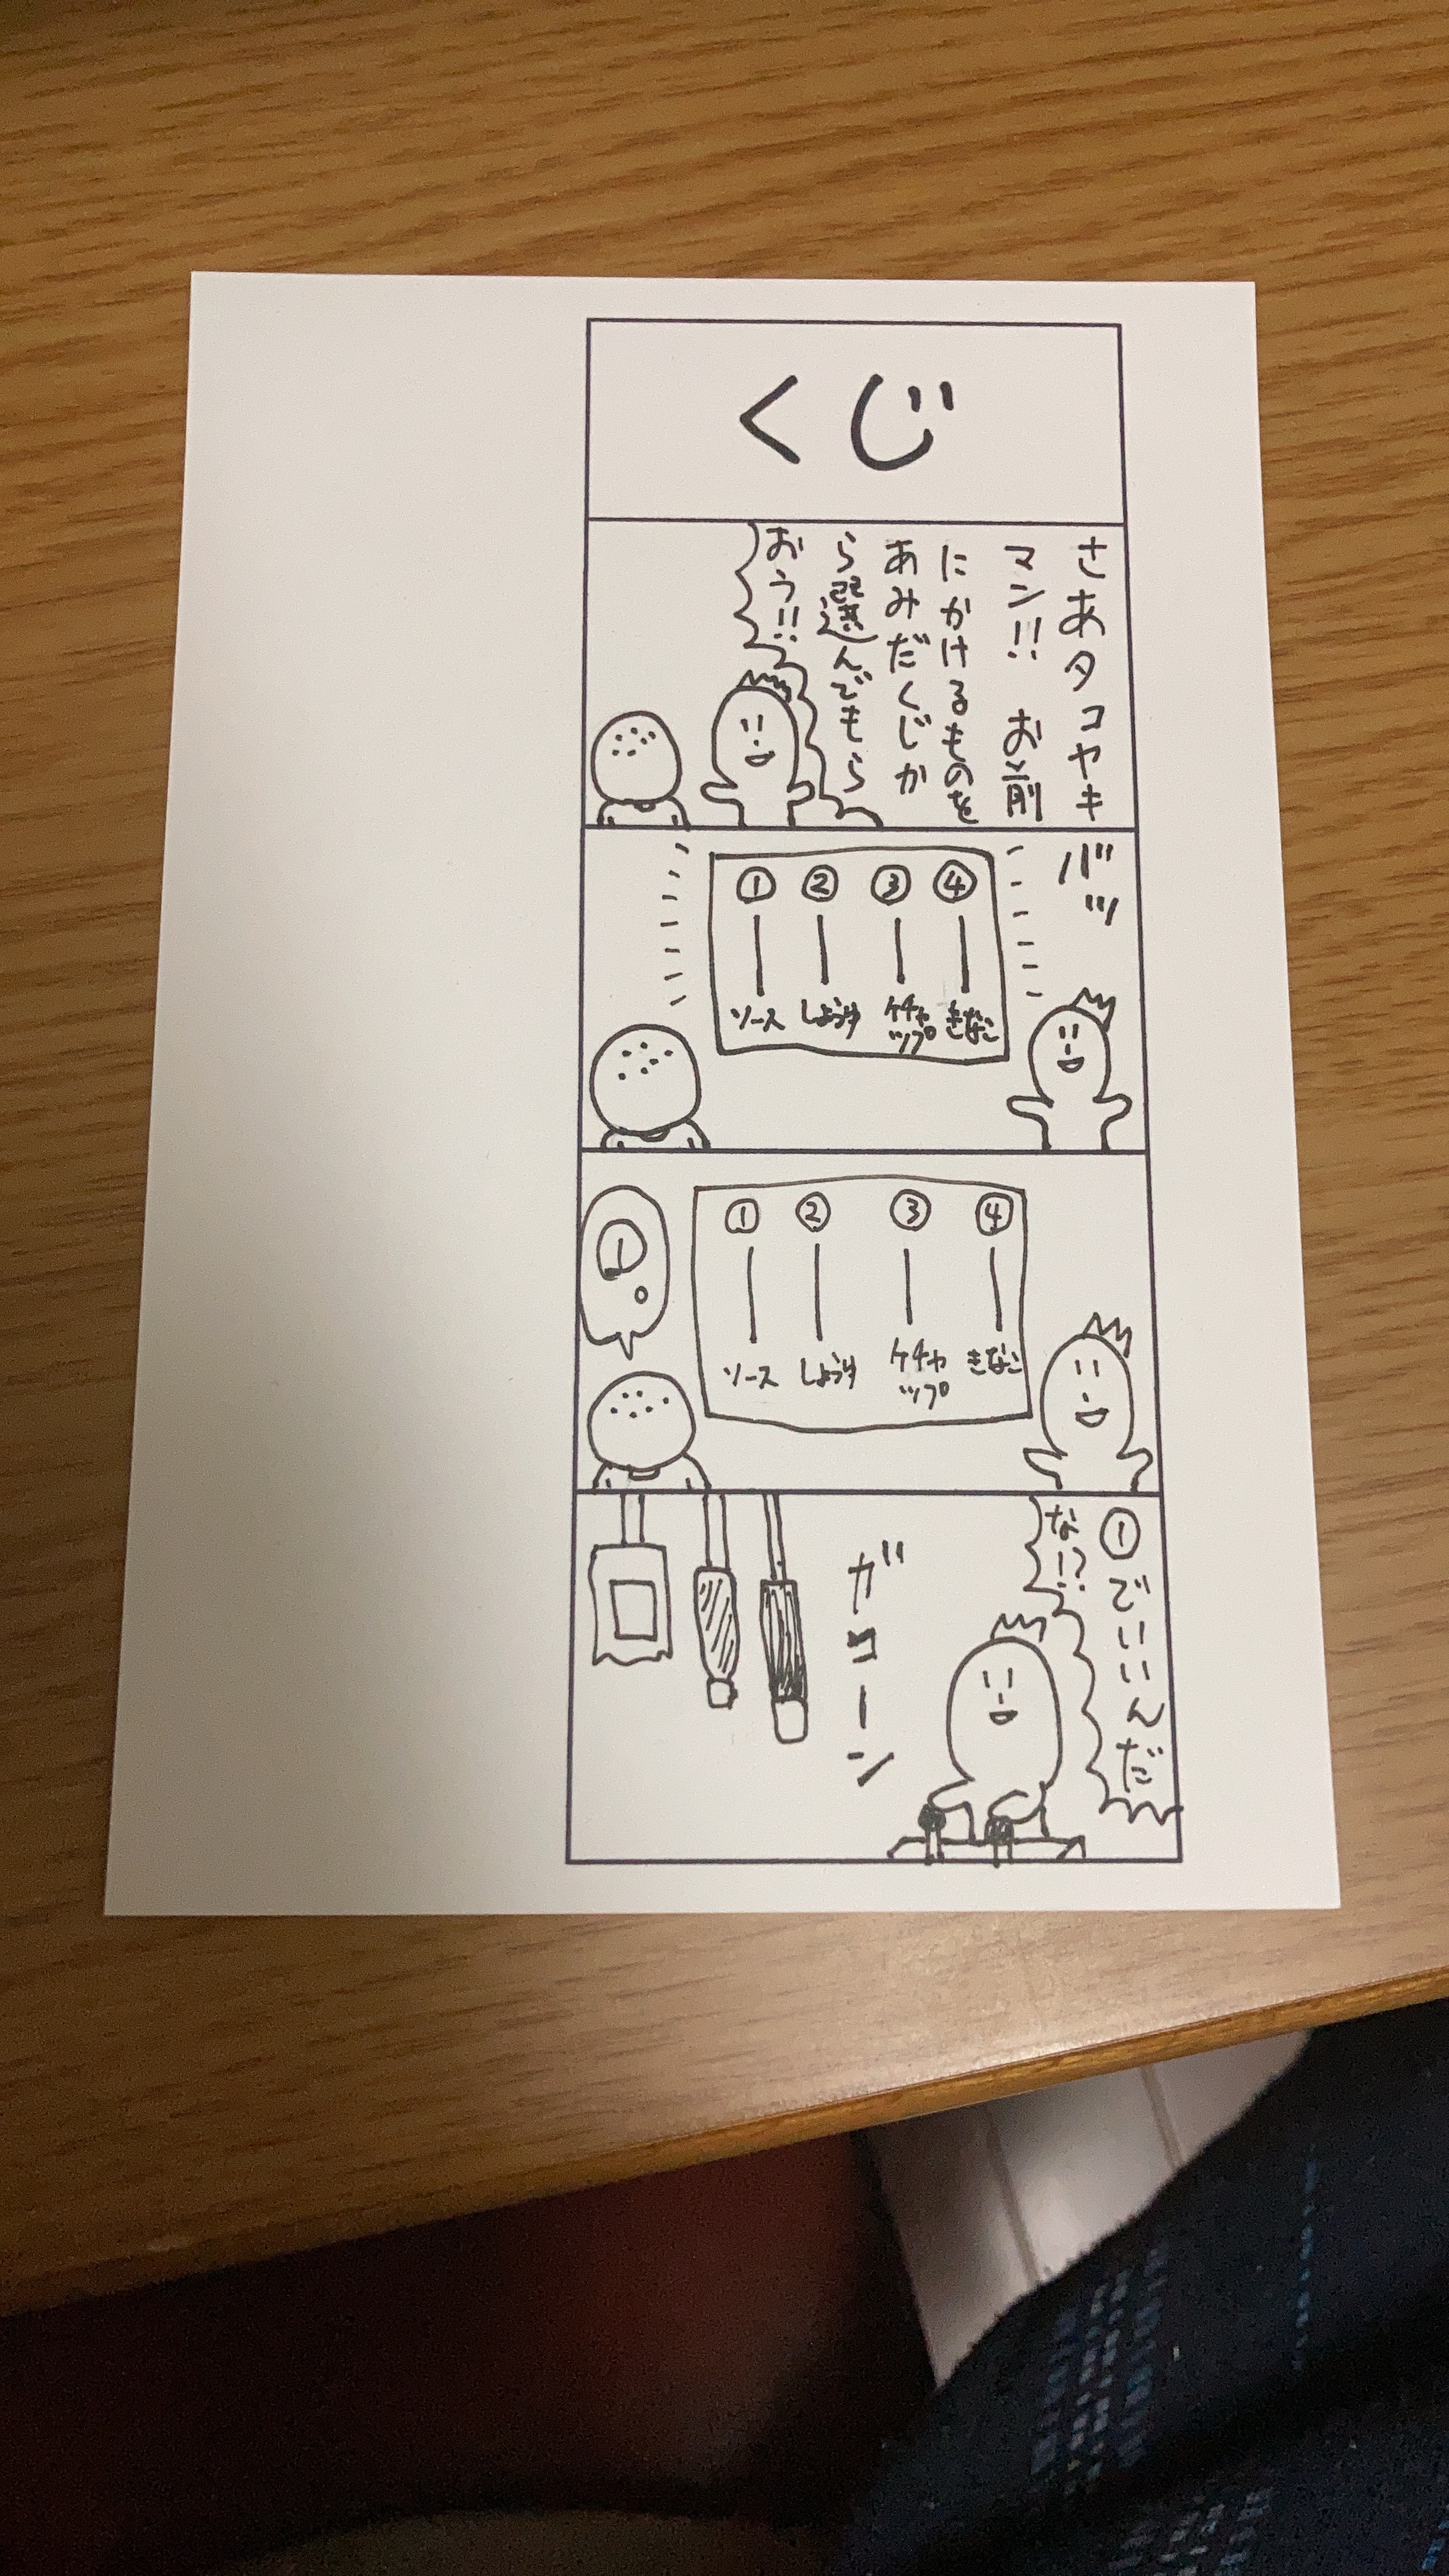 くじ
さあタコヤキ
マン!! お前
にかけるものを
あみだくじか
ら選んでもら
おう!!
バッ
① ② ③ ④
ソース しょうゆ ケチャ きなこ
ップ
① ② ③ ④
ソース しょうゆ ケチャ きなこ
ップ
①。
①でいいんだ
な!?
ガコーン